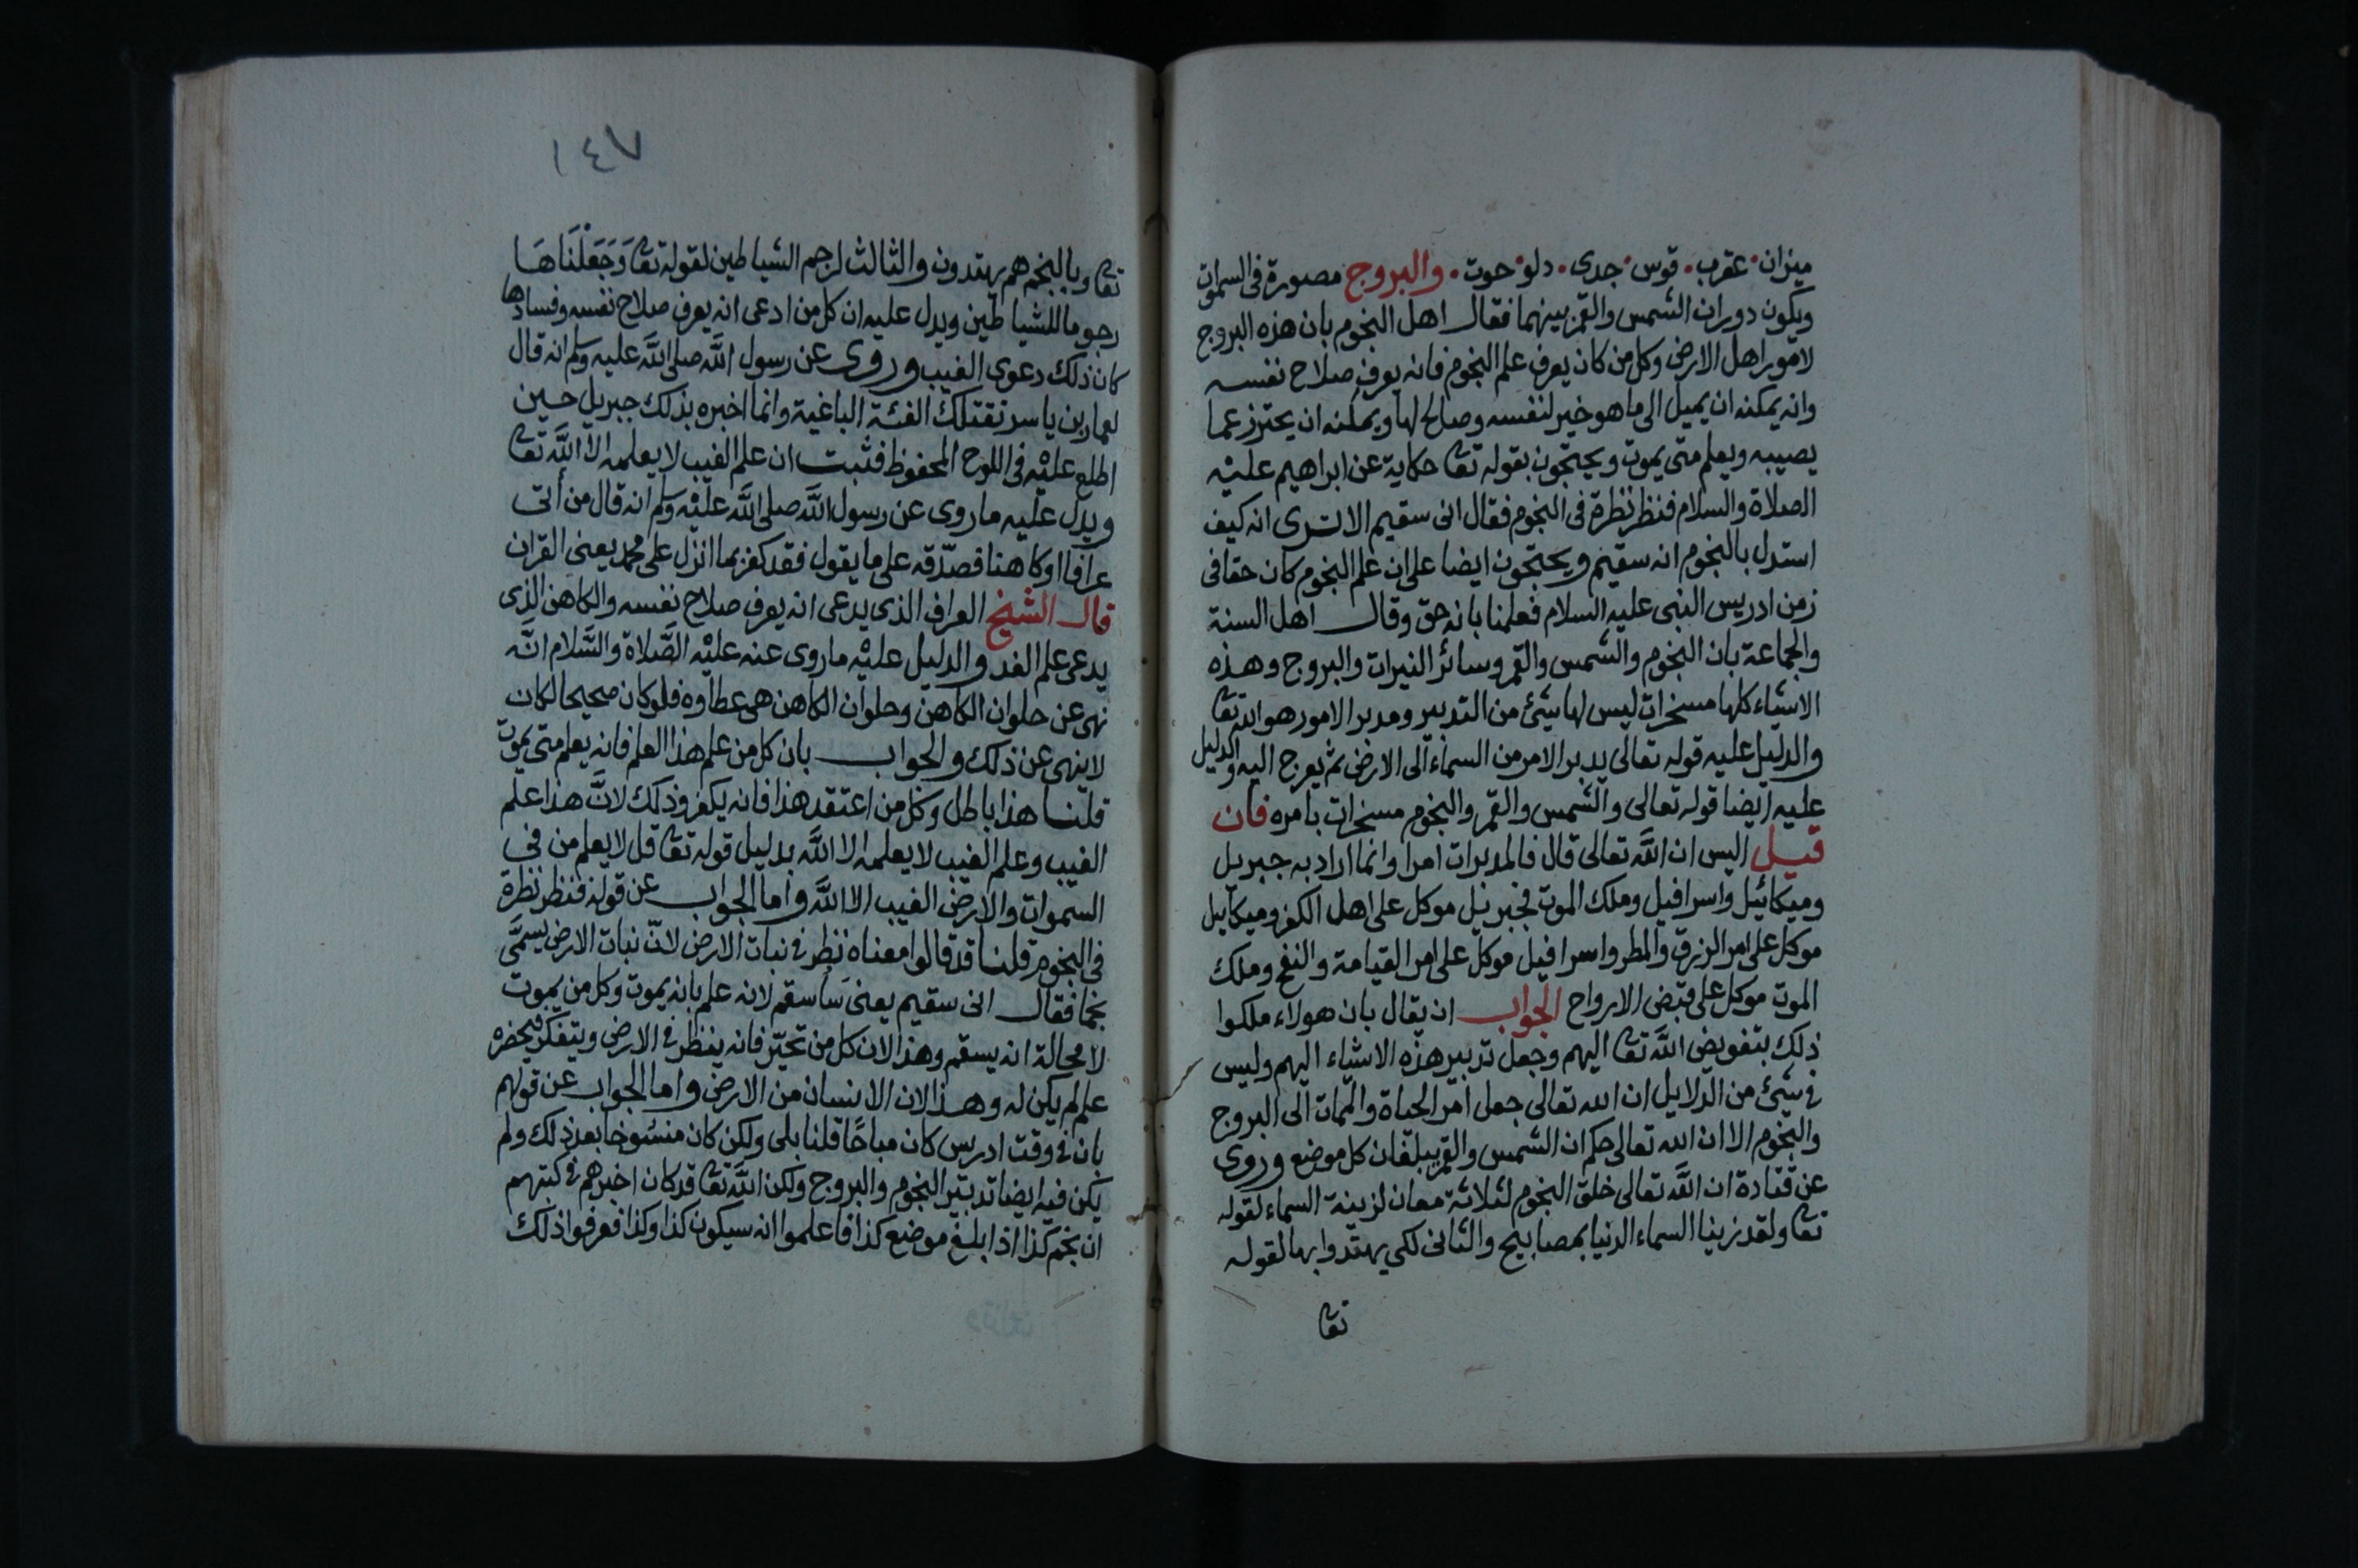 ميزان · عقرب · قوس · جدى · دلو · حوت · والبروج مصورة فى السموات
ويكون دوران الشمس والقمر بينهما فقال اهل النجوم بان هذه البروج
لامور اهل الارض وكل من كان يعرف علم النجوم فانه يعرف صلاح نفسه
وانه يمكنه ان يميل الى ما هو خير لنفسه وصالح لها ويمكنه ان يحترز عما
يصيبه ويعلم متى يموت ويحتجون بقوله تعا حكاية عن ابراهيم عليه
الصلاة والسلام فنظر نظرة فى النجوم فقال انى سقيم الا ترى انه كيف
استدل بالنجوم انه سقيم ويحتجون ايضا على ان علم النجوم كان حقا فى
زمن ادريس النبى عليه السلام فعلمنا بانه حق وقال اهل السنة
والجماعة بان النجوم والشمس والقمر وسائر النيرات والبروج وهذه
الاشياء كلها مسخرات ليس لها شئ من التدبير ومدبر الامور هو الله تعا
والدليل عليه قوله تعالى يدبر الامر من السماء الى الارض ثم يعرج اليه والدليل
عليه ايضا قوله تعالى والشمس والقمر والنجوم مسخرات بامره فان
قيل اليس ان الله تعالى قال فالمدبرات امرا وانما اراد به جبريل
وميكائيل واسرافيل وملك الموت فجبريل موكل على اهل الكفر وميكاييل
موكل على امر الرزق والمطر واسرافيل موكل على امر القيامة والنفخ وملك
الموت موكل على قبض الارواح الجواب ان يقال بان هولاء ملكوا
ذلك بتفويض الله تعا اليهم وجعل تدبير هذه الاشياء اليهم وليس
فى شئ من الدلايل ان الله تعالى جعل امر الحياة والممات الى البروج
والنجوم الا ان الله تعالى حكم ان الشمس والقمر يبلغان كل موضع وروى
عن قتادة ان الله تعالى خلق النجوم لثلاثة معان لزينة السماء لقوله
تعا ولقد زينا السماء الدنيا بمصابيح والثانى لكى يهتدوا بها لقوله
تعا
٧٤١
تعا وبالنجم هم يهتدون والثالث لرجم الشياطين لقوله تعا وَجَعَلْنَاهَا
رجوما للشياطين ويدل عليه ان كل من ادعى انه يعرف صلاح نفسه وفسادها
كان ذلك دعوى الغيب وروى عن رسول الله صلى الله عليه وسلم انه قال
لعمار بن ياسر تقتلك الفئة الباغية وانما اخبره بذلك جبريل حين
اطلع عليه فى اللوح المحفوظ فثبت ان علم الغيب لا يعلمه الا الله تعا
ويدل عليه ما روى عن رسول الله صلى الله عليه وسلم انه قال من أتى
عرافا او كاهنا فصدّقه على ما يقول فقد كفر بما انزل على محمد يعنى القران
قال الشيخ العراف الذى يدعى انه يعرف صلاح نفسه والكاهن الذى
يدعى علم الغد والدليل عليه ما روى عنه عليه الصَّلاة والسَّلام انَّه
نهى عن حلوان الكاهن وحلوان الكاهن هى عطاوه فلو كان صحيحا لكان
لا ينهى عن ذلك والجواب بان كل من علم هذا العلم فانه يعلم متى يموت
قلنا هذا باطل وكل من اعتقد هذا فانه يكفر وذلك لانَّ هذا علم
الغيب وعلم الغيب لا يعلمه الا الله بدليل قوله تعا قل لا يعلم من فى
السموات والارض الغيب الا الله واما الجواب عن قوله فنظر نظرة
فى النجوم قلنا قد قالوا معناه نظر فى نبات الارض لانّ نبات الارض يسمَّى
نجما فقال انى سقيم يعنى سأسقم لانه علم بانه يموت وكل من يموت
لا محالة انه يسقم وهذا لان كل من تحيّر فانه ينظر فى الارض ويتفكر فيحضره
علم لم يكن له وهذا لان الانسان من الارض واما الجواب عن قولهم
بان فى وقت ادريس كان مباحًا قلنا بلى ولكن كان منسوخا بعد ذلك ولم
يكن فيه ايضا تدبير النجوم والبروج ولكن الله تعا قد كان اخبرهم فى كتبهم
ان نجم كذا اذا بلغ موضع كذا فاعلموا انه سيكون كذا وكذا فعرفوا ذلك